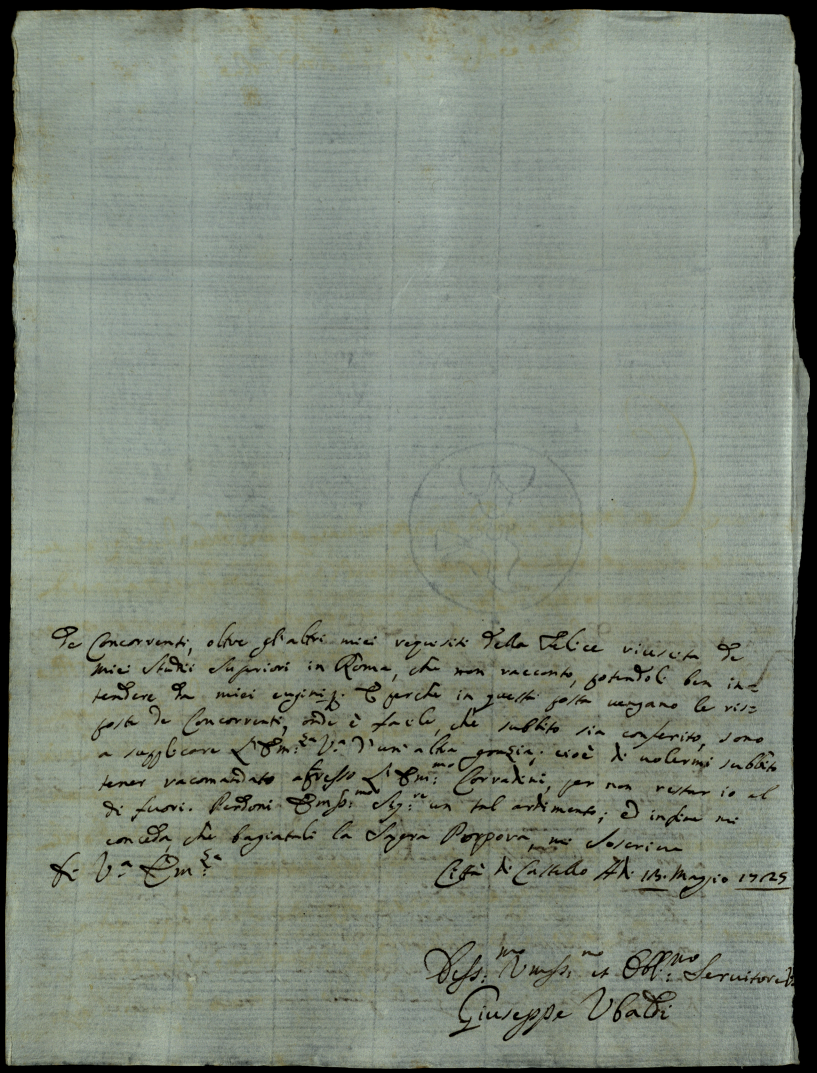 de Concorrenti, oltre gl'altri miei requisiti della felice riuscita de
miei studii superiori in Roma, che non racconto, potendoli ben in=
tendere da miei cugini. E perche in questa posta vengano le ris=
poste de Concorrenti, onde è facile, che subbito sia conferito, sono
a supplicare L'Em:za V:a d'un' altra grazia; cioè di volermi subbito
tener racomandato apresso L'Em:mo Corradini, per non restar io al
di fuori. Perdoni Eminss:mo Sig:re un tal ardimento; ed infine mi
conceda, che bagiatali la Sagra Porpora, mi soscriva
Di V:a Em:za Città di Castello Adi 18. Maggio 1725
Umiss:mo et Obl:mo Servitore
Giuseppe Ubaldi